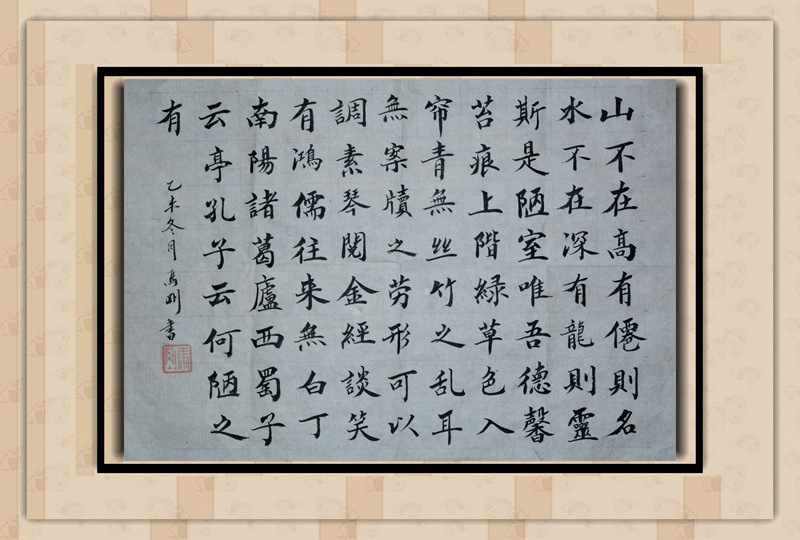 山不在高有僊則名
水不在深有龍則靈
斯是陋室唯吾德馨
苔痕上階緑草色入
帘青無丝竹之乱耳
無案牘之劳形可以
調素琴閱金經談笑
有鴻儒往来無白丁
南陽諸葛廬西蜀子
云亭孔子云何陋之
有
乙未冬月馬刚書